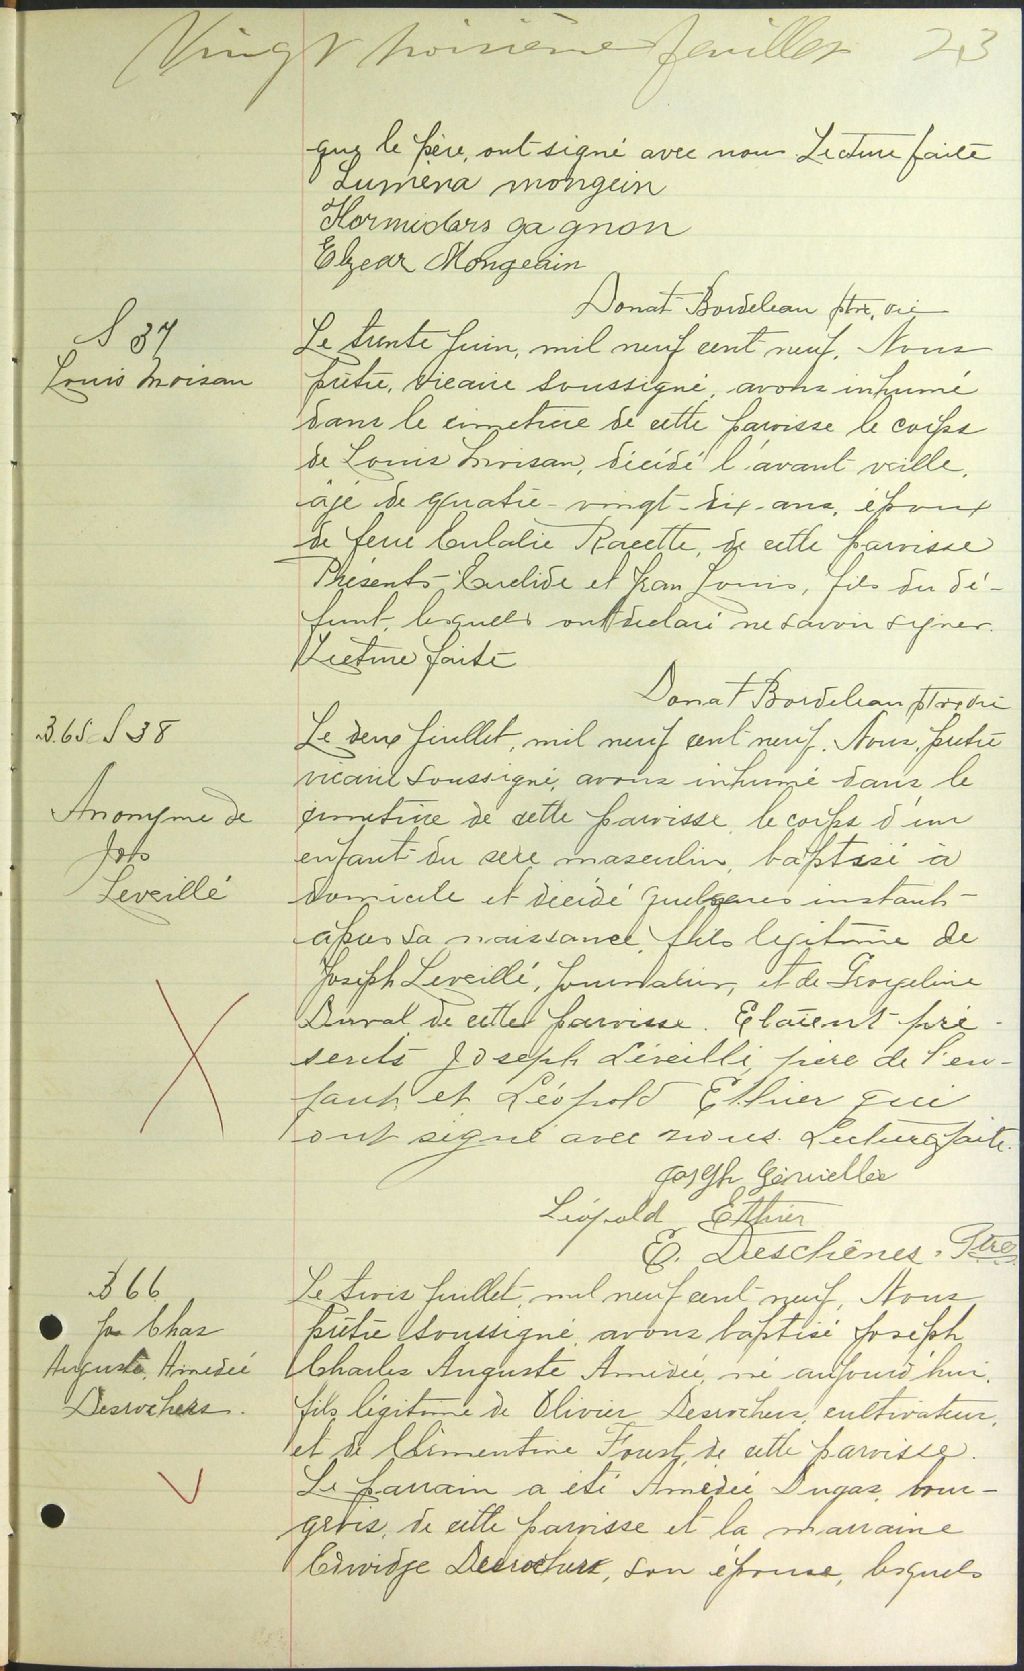 Vingt troisième feuillet 23
que le père, ont signé avec nous Lecture faite
Luména mongein
Hormidas gagnon
Elzear Mongeain
Donat Bordeleau ptre, vic
S 37
Louis Moisan
Le trente Juin, mil neuf cent neuf, Nous
prêtre, vicaire soussigné, avons inhumé
dans le cimetière de cette paroisse le corps
de Louis Moisan, décédé l'avant veille,
âgé de quatre-vingt-dix-ans, époux
de feue Eulalie Racette, de cette paroisse
Présents Euclide et Jean Louis, fils du dé-
funt, lesquels ont déclaré ne savoir signer.
Lecture faite
Donat Bordeleau ptre vic
B.65 S 38
Anonyme de
Jos
Leveillé
Le deux juillet, mil neuf cent neuf. Nous, prêtre
vicaire soussigné, avons inhumé dans le
cimetière de cette paroisse, le corps d'un
enfant du sexe masculin, baptisé à
domicile et décédé quelques instants
après sa naissance, fils légitime de
Joseph Leveillé, journalier, et de Georgeline
Duval, de cette paroisse. Etaient pré-
sents Joseph Léveillé, père de l'en-
fant, et Léopold Ethier qui
ont signé avec nous. Lecture faite.
Léopold Ethier
E. Deschênes. Ptre
B 66
Jos Chas
Auguste, Amedée
Desrochers.
Le trois juillet, mil neuf cent neuf, Nous
prêtre soussigné, avons baptisé Joseph
Charles Auguste Amédée, né aujourd'hui,
fils légitime de Olivier Desrochers, cultivateur,
et de Clémentine Foust, de cette paroisse.
Le parrain a été Amédée Dugas, bour-
geois, de cette paroisse et la marraine
Edwidge Desrochers, son épouse, lesquels